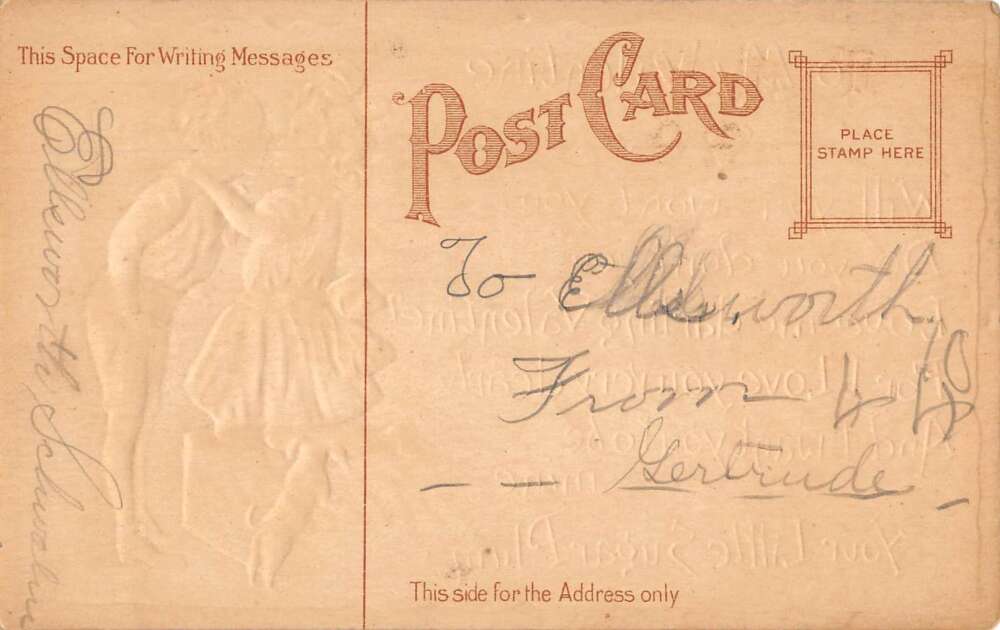 This Space For Writing Messages
POST CARD
PLACE
STAMP HERE
Ellsworth
To Ellsworth
From
Gertrude
This side for the Address only